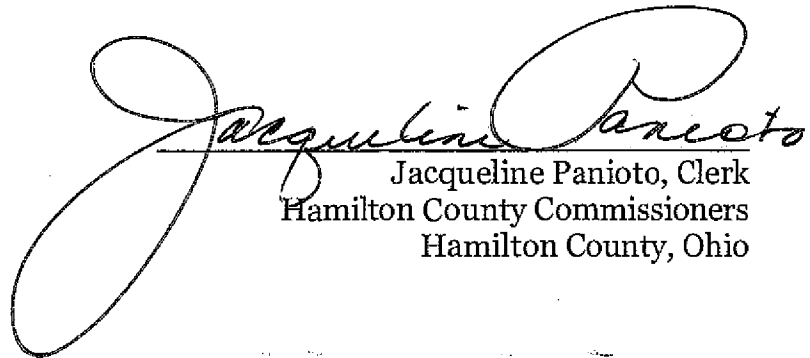 Jacqueline Panioto
Jacqueline Panioto, Clerk
Hamilton County Commissioners
Hamilton County, Ohio